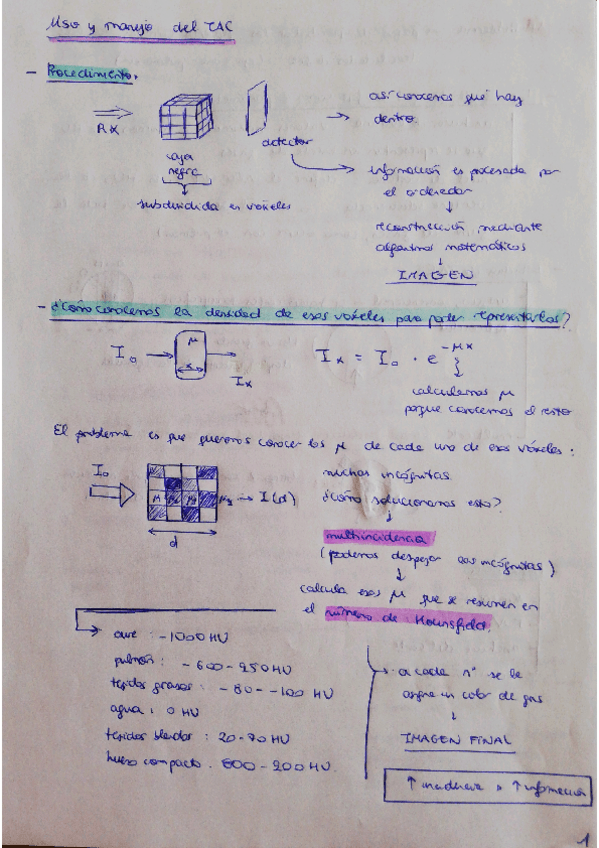 Uso y manejo del TAC
- Procedimiento.
RX
caja
negra
subdividida en vóxeles
detector
así conocemos qué hay
dentro.
información es procesada por
el ordenador
reconstrucción mediante
algoritmos matemáticos
IMAGEN
- ¿Cómo conocemos la densidad de esos vóxeles para poder representarlos?
I₀ μ x Iₓ
Iₓ = I₀ · e^-μx
calculamos μ
porque conocemos el resto
El problema es que queremos conocer los μ de cada uno de esos vóxeles:
I₀
μ μ
I(d)
d
muchas incógnitas
¿Cómo solucionamos esto?
multiincidencia
(podemos despejar las incógnitas)
calcula esos μ que se resumen en
el número de Hounsfield.
aire : -1000 HU
pulmón : -600-950 HU
tejidos grasos : -80--100 HU
agua : 0 HU
tejidos blandos : 20-70 HU
hueso compacto : 600-200 HU.
a cada nº se le
asigna un color de gris
IMAGEN FINAL
↑ incidencia → ↑ información
1